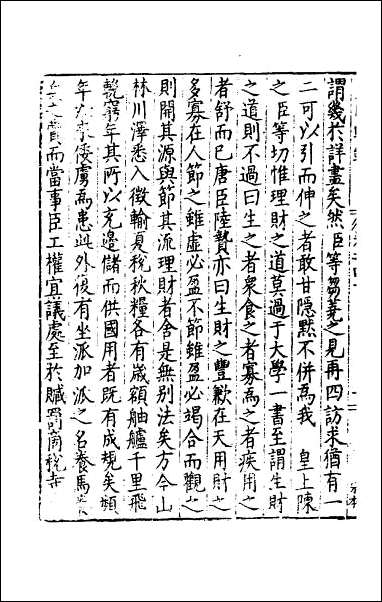 謂幾於詳盡矣然臣等芻蕘之見再四訪求猶有一
二可以引而伸之者敢甘隠黙不併為我　皇上陳
之臣等切惟理財之道莫過于大學一書至謂生財
之道則不過曰生之者衆食之者寡為之者疾用之
者舒而已唐臣陸贄亦曰生財之豐歉在天用財之
多寡在人節之雖虛必盈不節雖盈必竭合而觀之
則開其源與節其流理財者舍是無别法矣方今山
林川澤悉入徵輸夏稅秋糧各有歳額舳艫千里飛
輓窮年其所以充邊儲而供國用者既有成規矣頻
年以来倭虜為患此外復有坐派加派之名養馬
之費而當事臣工權宜議處至於贓罰商稅寺